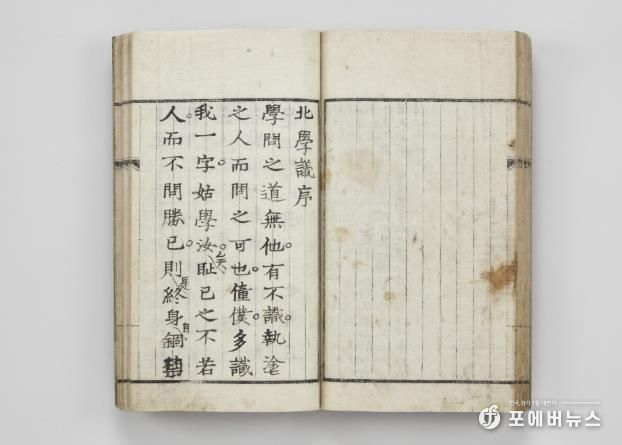 北學議序
學問之道無他。有不識。執塗
之人而問之可也。僮僕。多識
我一字。姑學汝。恥已之不若
人。而不問勝已。則是終身自錮
포에버뉴스